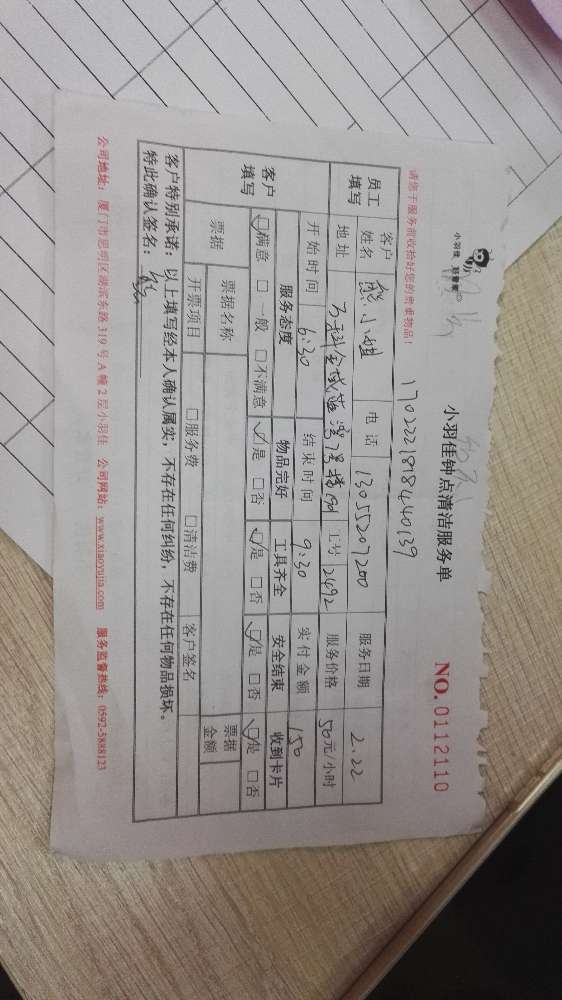 小羽佳 好管家
小羽佳钟点清洁服务单
NO. 0112110
请您于服务前收拾好您的贵重物品!
1702221818440139
员工填写 客户姓名 熊小姐 电话 13055207200 服务日期 2.22
地址 万科金域蓝湾7号楼 工号 2492 服务价格 50元/小时
开始时间 6:30 结束时间 9:30 实付金额 150
客户填写 服务态度 物品完好 工具齐全 安全结束 收到卡片
☑满意 □一般 □不满意 ☑是 □否 ☑是 □否 ☑是 □否 ☑是 □否
票据 票据名称 票据金额
开票项目 □服务费 □清洁费 客户签名
客户特别承诺:以上填写经本人确认属实,不存在任何纠纷,不存在任何物品损坏。
特此确认签名:熊
公司地址:厦门市思明区湖滨东路319号A幢2层小羽佳 公司网站:www.xiaoyujia.com 服务监督热线:0592-5888123